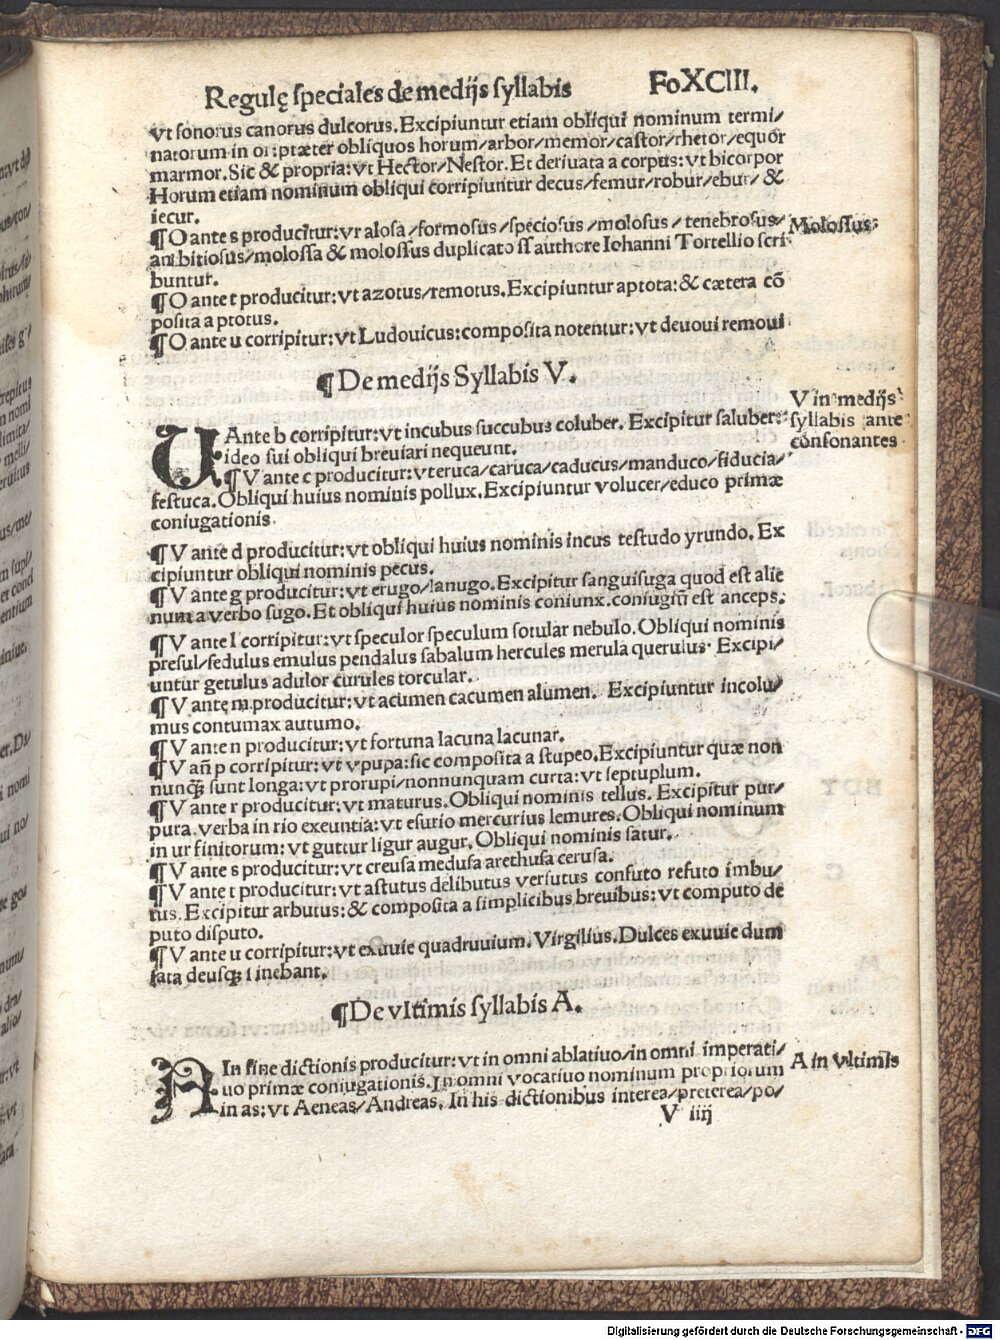 Regulę speciales de medijs syllabis FoXCIII.
vt sonorus canorus dulcorus. Excipiuntur etiam obliqui nominum termi/
natorum in or: præter obliquos horum/arbor/memor/castor/rhetor/equor
marmor. Sic & propria: vt Hector/Nestor. Et deriuata a corpus: vt bicorpor
Horum etiam nominum obliqui corripiuntur decus/femur/robur/ebur/ &
iecur.
¶O ante s producitur: vr alosa/formosus/speciosus/molosus/tenebrosus/
ambitiosus/molossa & molossus duplicato ss authore Iohanni Tortellio scri
buntur.
Molossus:
¶O ante t producitur: vt azotus/remotus. Excipiuntur aptota: & cætera cō
posita a ptotus.
¶O ante u corripitur: vt Ludouicus: composita notentur: vt deuoui remoui
¶De medijs Syllabis V.
V in medijs
syllabis ante
consonantes
UAnte b corripitur: vt incubus succubus coluber. Excipitur saluber:
ideo sui obliqui breuiari nequeunt.
¶V ante c producitur: vt eruca/caruca/caducus/manduco/fiducia/
festuca. Obliqui huius nominis pollux. Excipiuntur volucer/educo primæ
coniugationis.
¶V ante d producitur: vt obliqui huius nominis incus testudo yrundo. Ex
cipiuntur obliqui nominis pecus.
¶V ante g producitur: vt erugo/lanugo. Excipitur sanguisuga quod est alie
num a verbo sugo. Et obliqui huius nominis coniunx. coniugiū est anceps.
¶V ante l corripitur: vt speculor speculum sotular nebulo. Obliqui nominis
presul/sedulus emulus pendalus sabalum hercules merula querulus. Excipi/
untur getulus adulor curules torcular.
¶V ante m producitur: vt acumen cacumen alumen. Excipiuntur incolu/
mus contumax autumo.
¶V ante n producitur: vt fortuna lacuna lacunar.
¶V añ p corripitur: vt vpupa: sic composita a stupeo. Excipiuntur quæ non
nunq̃ sunt longa: vt prorupi/nonnunquam curta: vt septuplum.
¶V ante r producitur: vt maturus. Obliqui nominis tellus. Excipitur pur/
pura. verba in rio exeuntia: vt esurio mercurius lemures. Obliqui nominum
in ur finitorum: vt guttur ligur augur. Obliqui nominis satur.
¶V ante s producitur: vt creusa medusa arethusa cerusa.
¶V ante t producitur: vt astutus delibutus versutus confuto refuto imbu/
tus. Excipitur arbutus: & composita a simplicibus breuibus: vt computo de
puto disputo.
¶V ante u corripitur: vt exuuie quadruuium. Virgilius. Dulces exuuie dum
fata deusq̃ sinebant.
¶De vltimis syllabis A.
A in vltimis
AIn fine dictionis producitur: vt in omni ablatiuo/in omni imperati/
uo primæ coniugationis. In omni vocatiuo nominum propriorum
in as: vt Aeneas/Andreas. In his dictionibus interea/preterea/po/
V iiij
Digitalisierung gefördert durch die Deutsche Forschungsgemeinschaft - DFG